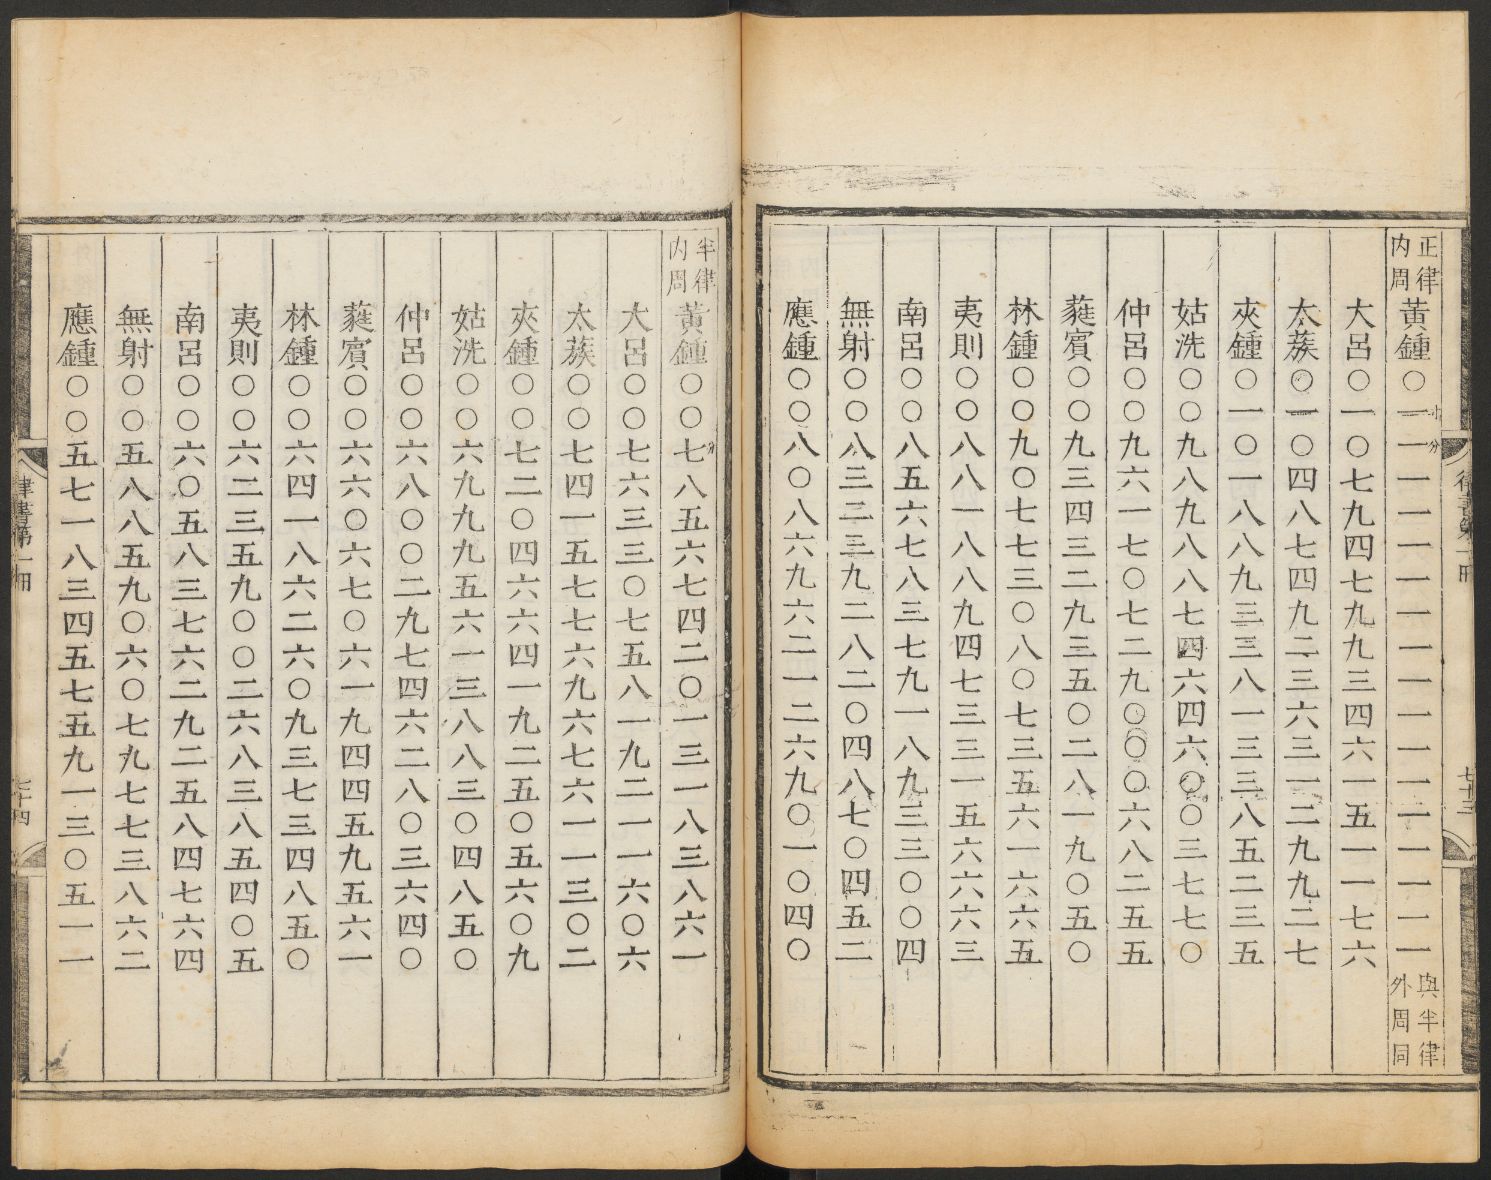 律書第一冊 七十三
正律內周 黃鍾○一寸一分一一一一一一一一一一一一一一一 與半律外周同
大呂○一○七九四七九九三四六一五一一七六
太蔟○一○四八七四九二三六三一二九九二七
夾鍾○一○一八八九三三八一三三八五二三五
姑洗○○九八九八八七四六四六○○三七七○
仲呂○○九六一七○七二九○○○六八二五五
蕤賓○○九三四三二九三五○二八一九○五○
林鍾○○九○七七三○八○七三五六一六六五
夷則○○八八一八八九四七三三一五六六六三
南呂○○八五六七八三七九一八九三三○○四
無射○○八三二三九二八二○四八七○四五二
應鍾○○八○八六九六二一二六九○一○四○
半律內周 黃鍾○○七分八五六七四二○一三一八三八六一
大呂○○七六三三○七五八一九二一一六○六
太蔟○○七四一五七七六九六七六一一三○二
夾鍾○○七二○四六六四一九二五○五六○九
姑洗○○六九九九五六一三八八三○四八五○
仲呂○○六八○○二九七四六二八○三六四○
蕤賓○○六六○六七○六一九四四五九五六一
林鍾○○六四一八六二六○九三七三四八五○
夷則○○六二三五九○○二六八三八五四○五
南呂○○六○五八三七六二九二五八四七六四
無射○○五八八五九○六○七九七七三八六二
應鍾○○五七一八三四五七五九一三○五一一
律書第一冊 七十四